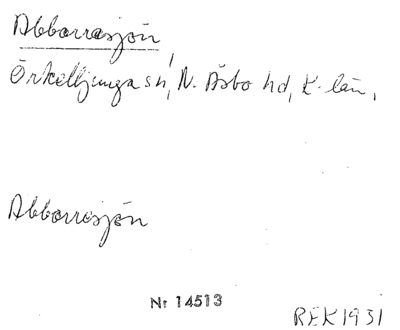 Abborrasjön,
Örkelljunga sn, N. Åsbo hd, K. län,
Abborrasjön
Nr 14513
REK 1931